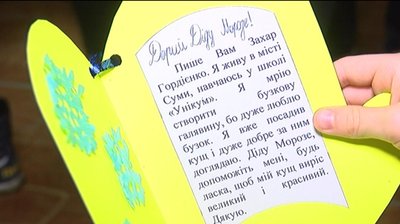 Добрий Діду Морозе!
Пише Вам Захар
Гордієнко. Я живу в місті
Суми, навчаюсь у школі
«Унікум». Я мрію
створити бузкову
галявину, бо дуже люблю
бузок. Я вже посадив
кущ і дуже добре за ним
доглядаю. Діду Морозе,
допоможіть мені, будь
ласка, щоб мій кущ виріс
великий і красивий.
Дякую.